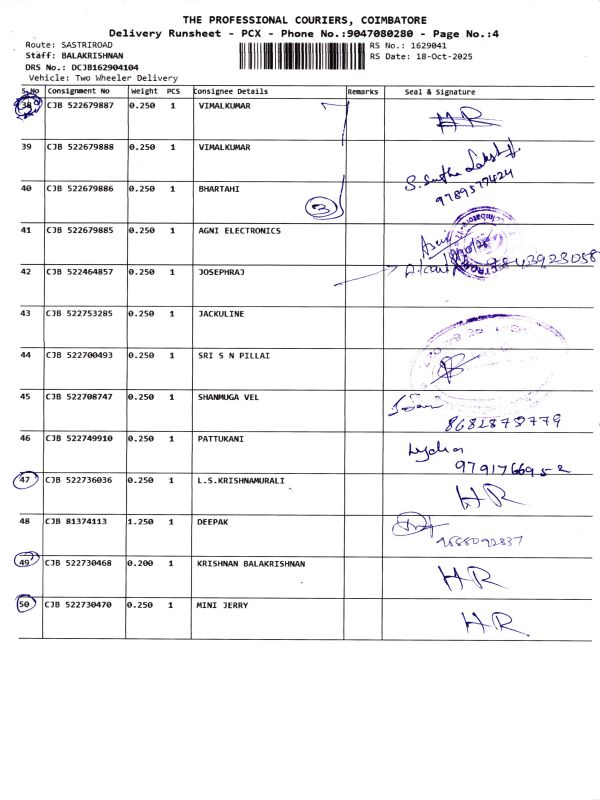 THE PROFESSIONAL COURIERS, COIMBATORE
Delivery Runsheet - PCX - Phone No.:9047080280 - Page No.:4
Route: SASTRIROAD RS No.: 1629041
Staff: BALAKRISHNAN RS Date: 18-Oct-2025
DRS No.: DCJB162904104
Vehicle: Two Wheeler Delivery
S.No Consignment No Weight PCS Consignee Details Remarks Seal & Signature
38 CJB 522679887 0.250 1 VIMALKUMAR HR
39 CJB 522679888 0.250 1 VIMALKUMAR
40 CJB 522679886 0.250 1 BHARTAHI 3 9789577424
41 CJB 522679885 0.250 1 AGNI ELECTRONICS
42 CJB 522464857 0.250 1 JOSEPHRAJ
43 CJB 522753285 0.250 1 JACKULINE
44 CJB 522700493 0.250 1 SRI S N PILLAI
45 CJB 522708747 0.250 1 SHANMUGA VEL 8682875779
46 CJB 522749910 0.250 1 PATTUKANI Lydia 9791766952
47 CJB 522736036 0.250 1 L.S.KRISHNAMURALI HR
48 CJB 81374113 1.250 1 DEEPAK
49 CJB 522730468 0.200 1 KRISHNAN BALAKRISHNAN HR
50 CJB 522730470 0.250 1 MINI JERRY HR